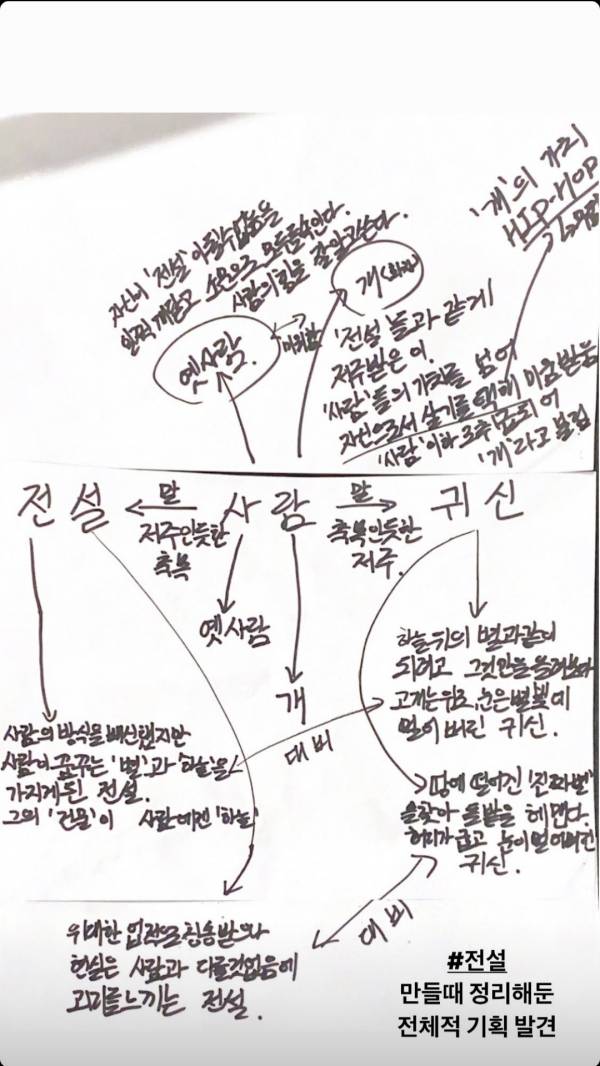 '개'의 가치
HIP-HOP
자신이 '전설'이 될수 없음을
일찍 깨닫고 소문으로 모두를속인다.
사람의 힘을 잘 알고쓴다.
옛사람.
개
'전설'들과 같게
저주받은 이.
'사람'들의 가치를 넘어
자신으로서 살기를 택해 미움받는
'사람' 이하
'개'라고 불림
전설
말
사람
말
귀신
저주인듯한
축복
축복인듯한
저주.
옛사람
개
대비
하늘위의 별과같이
되려고 그것만을 올려보다
고개는위로, 눈은별빛에
멀어 버린 귀신.
사람의 방식을 배신했지만
사람이 꿈꾸는 '별'과 '하늘'을
가지게된 전설.
그의 '건물'이 사람에겐 '하늘'
땅에 떨어진 '진짜별'
을찾아 돌밭을 헤맨다.
허리가 굽고 눈이 멀어버린
귀신.
대비
위대한 업적으로 칭송받으나
현실은 사람과 다를것없음에
괴리를느끼는 전설.
#전설
만들때 정리해둔
전체적 기획 발견